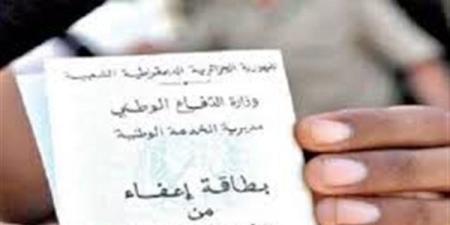 الجمهورية الجزائرية الديمقراطية الشعبية
وزارة الدفاع الوطني
مديرية الخدمة الوطنية
بطاقة إعفاء
من